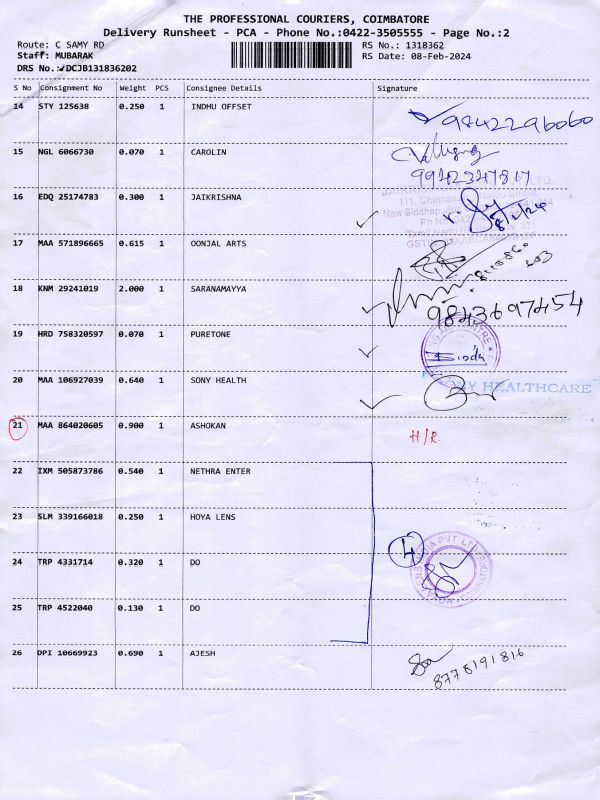 THE PROFESSIONAL COURIERS, COIMBATORE
Delivery Runsheet - PCA - Phone No.:0422-3505555 - Page No.:2
Route: C SAMY RD RS No.: 1318362
Staff: MUBARAK RS Date: 08-Feb-2024
DRS No.: DCJB131836202
S No Consignment No Weight PCS Consignee Details Signature
14 STY 125638 0.250 1 INDHU OFFSET 9842296060
15 NGL 6066730 0.070 1 CAROLIN
9942347817
16 EDQ 25174783 0.300 1 JAIKRISHNA 8/2/24
17 MAA 571896665 0.615 1 OONJAL ARTS
18 KNM 29241019 2.000 1 SARANAMAYYA
9843697454
19 HRD 758320597 0.070 1 PURETONE
20 MAA 106927039 0.640 1 SONY HEALTH SONY HEALTHCARE
21 MAA 864020605 0.900 1 ASHOKAN H/R
22 IXM 505873786 0.540 1 NETHRA ENTER
23 SLM 339166018 0.250 1 HOYA LENS
24 TRP 4331714 0.320 1 DO 4
25 TRP 4522040 0.130 1 DO
26 DPI 10669923 0.690 1 AJESH
8778191816